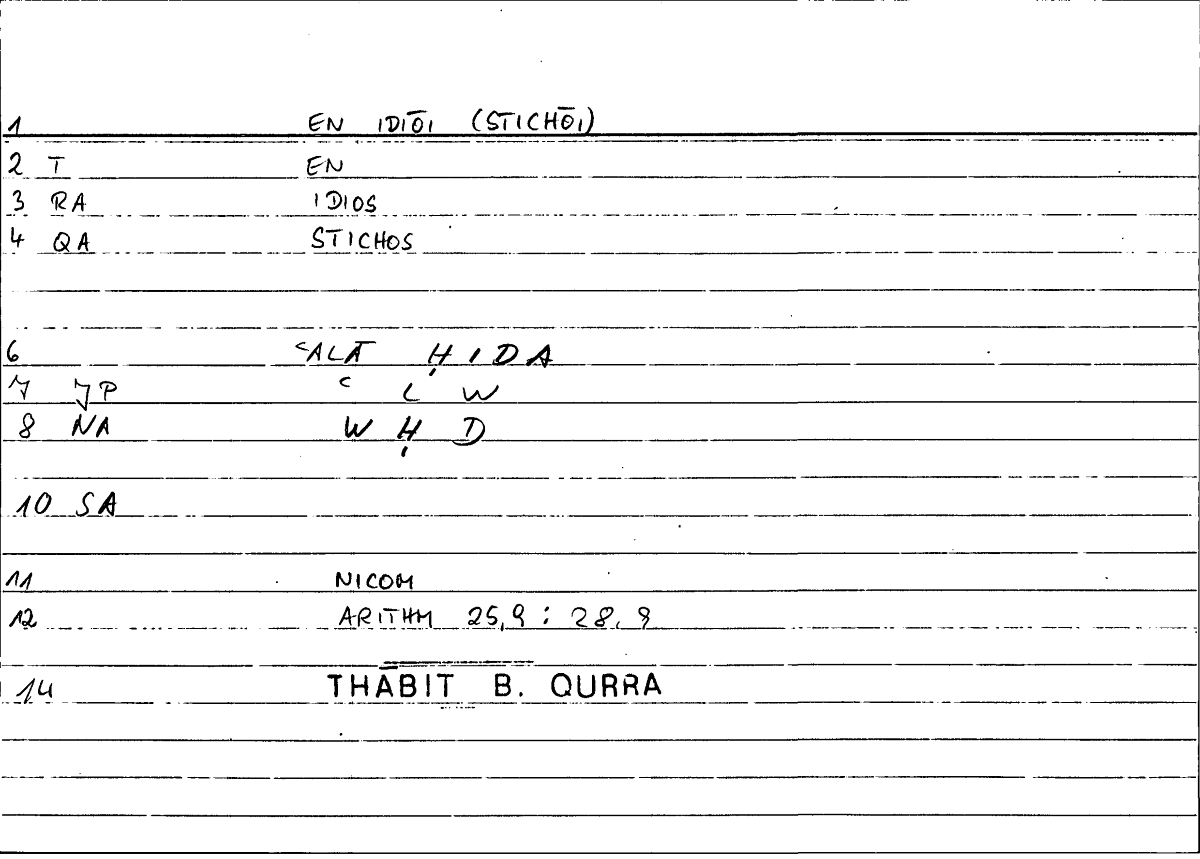 1 EN IDIŌI (STICHŌI)
2 T EN
3 RA IDIOS
4 QA STICHOS
6 ʿALĀ ḤIDA
7 JP ʿ L W
8 NA W Ḥ D
10 SA
11 NICOM
12 ARITHM 25,9 : 28,9
14 THĀBIT B. QURRA